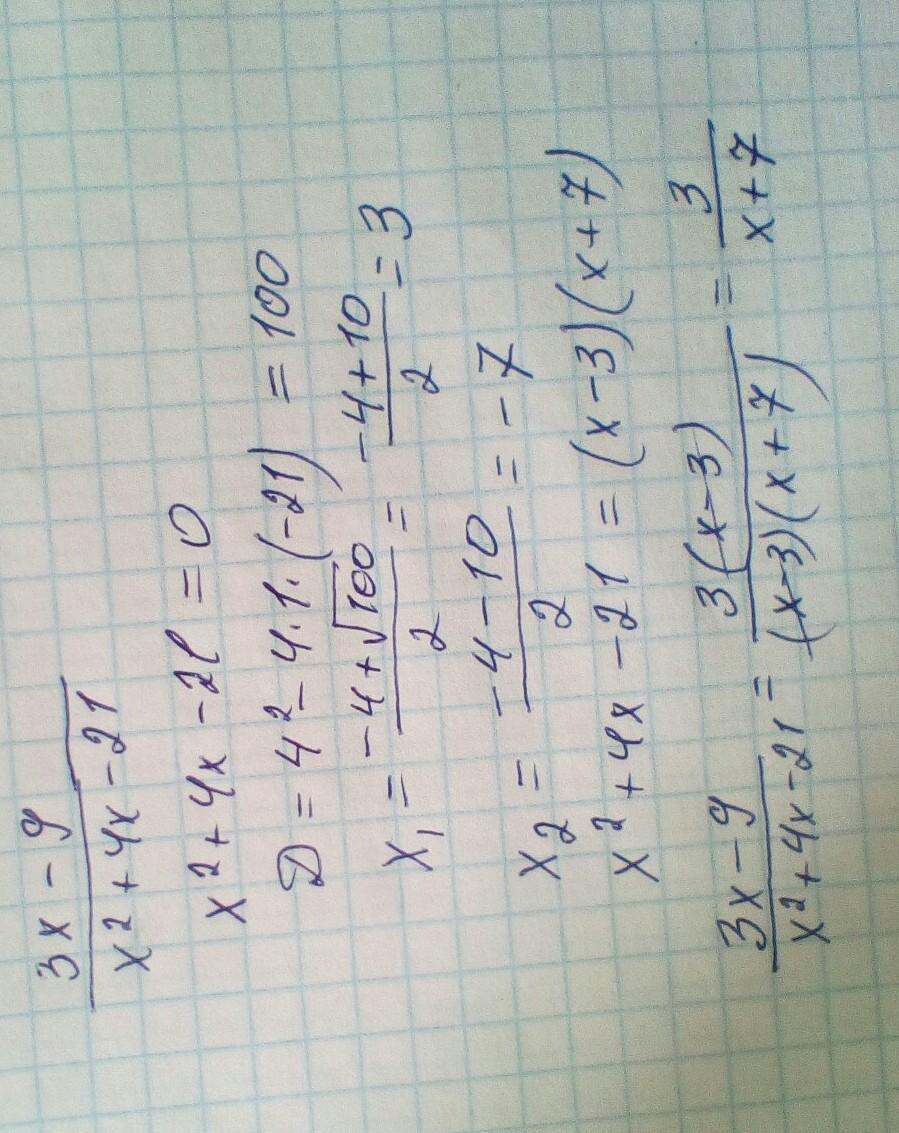 (3x - 9)/(x² + 4x - 21)
x² + 4x - 21 = 0
D = 4² - 4·1·(-21) = 100
x₁ = (-4 + √100)/2 = (-4 + 10)/2 = 3
x₂ = (-4 - 10)/2 = -7
x² + 4x - 21 = (x - 3)(x + 7)
(3x - 9)/(x² + 4x - 21) = 3(x - 3)/((x - 3)(x + 7)) = 3/(x + 7)